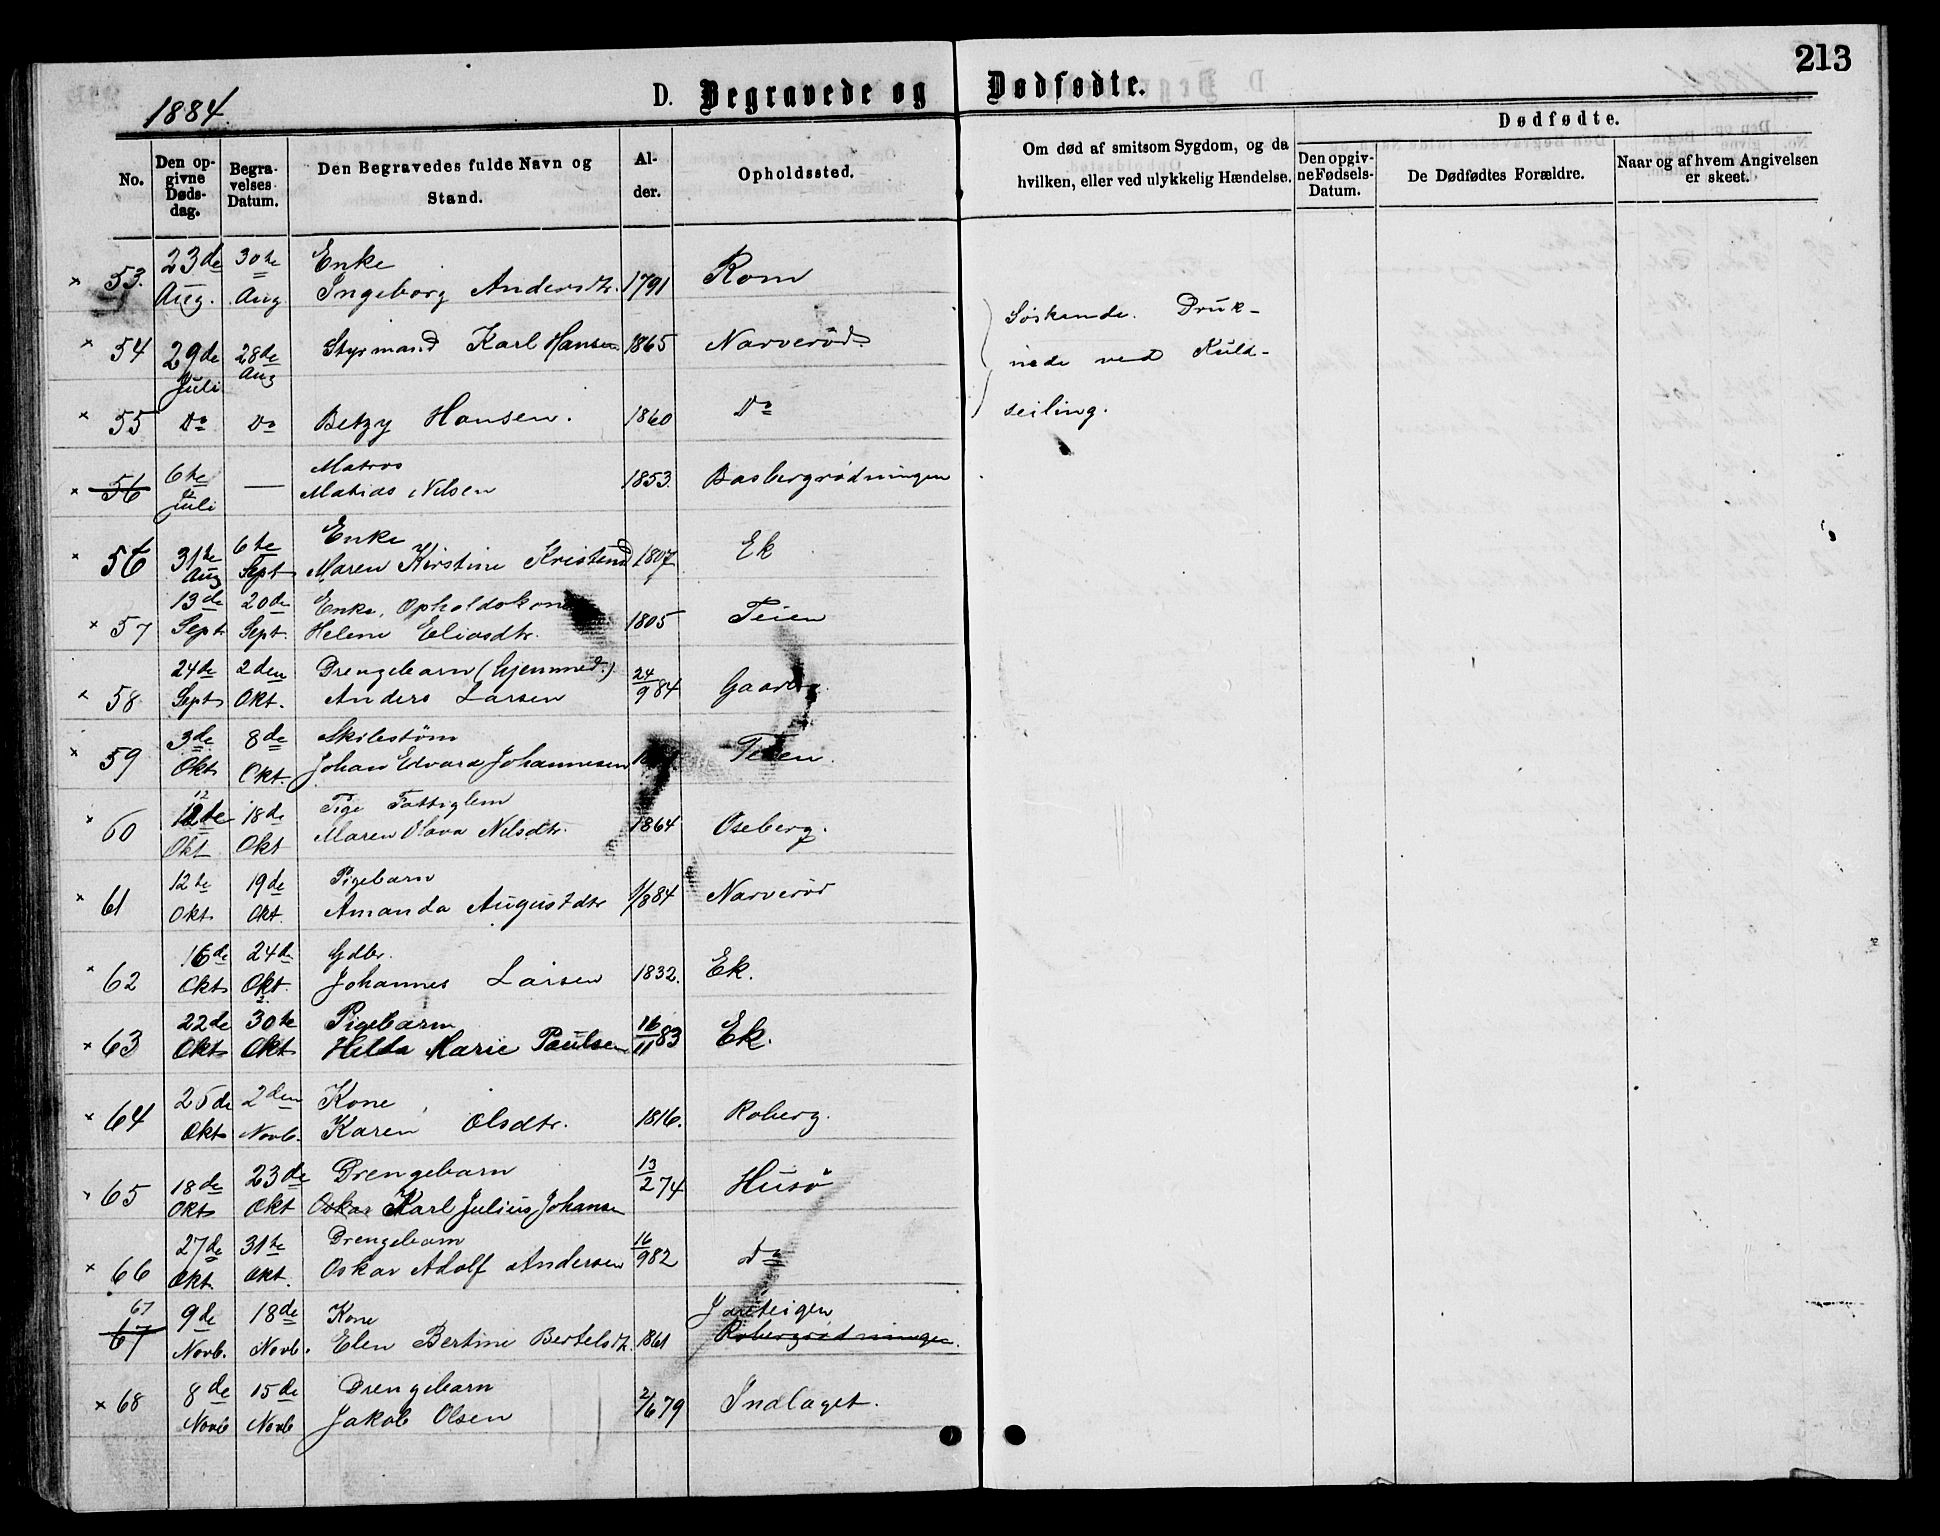 213
1884.
D. Begravede og Dødfødte.
No.
Den opgivne Dødsdag.
Begravelses Datum.
Den Begravedes fulde Navn og Stand.
Alder.
Opholdssted.
Om død af smitsom Sygdom, og da hvilken, eller ved ulykkelig Hændelse.
Dødfødte.
Den opgivne Fødsels-Datum.
De Dødfødtes Forældre.
Naar og af hvem Angivelsen er skeet.
× 53. 23de Aug. 30te Aug Enke Ingeborg Andersdtr. 1791 Rom
× 54 29de Juli 28de Aug Styrmand Karl Hansen 1865 Narverød
Søskende. Druk-
nede ved Kuld-
seiling.
× 55 Do Do Betzy Hansen. 1860 Do
× 56 6te Juli — Matros Matias Nilsen 1853. Basbergrødningen
× 56 31te Aug 6te Sept Enke Maren Kirstine Kristensd 1807 Ek
× 57 13de Sept 20de Sept. Enke, Opholdskone Helene Eliasdtr. 1805 Teien
× 58 24de Sept 2den Okt. Drengebarn (hjemmed.) Anders Larsen 24/9 84 Gaarbo.
× 59 3de Okt 8de Okt. Johan Edvard Johannesen Teien.
× 60 12 12de Okt 18de Okt Pige Fattiglem Maren Olava Nilsdtr. 1864 Oseberg.
× 61 12te Okt 19de Okt. Pigebarn Amanda Augustdtr 1/8 84 Narverød
× 62 16de Okt 24de Okt. Gdbr. Johannes Larsen 1832. Ek.
× 63 22de Okt 30te Okt Pigebarn Helda Marie Paulsen 16/11 83 Ek.
× 64 25de Okt 2den Novb. Kone Karen Olsdtr. 1816. Roberg.
× 65 18de Okt 23de Okt Drengebarn Oskar Karl Julius Johansen 13/2 74 Husø
× 66 27de Okt 31te Okt. Drengebarn Oskar Adolf Andersen 16/9 82 Do
67 67 9de Novb. 18de Novb. Kone Elen Bertine Bertelsdtr. 1861 Jarteigen Robergrødningen.
× 68 8de Novb 15de Novb Drengebarn Jakob Olsen 2/6 79 Indlaget.